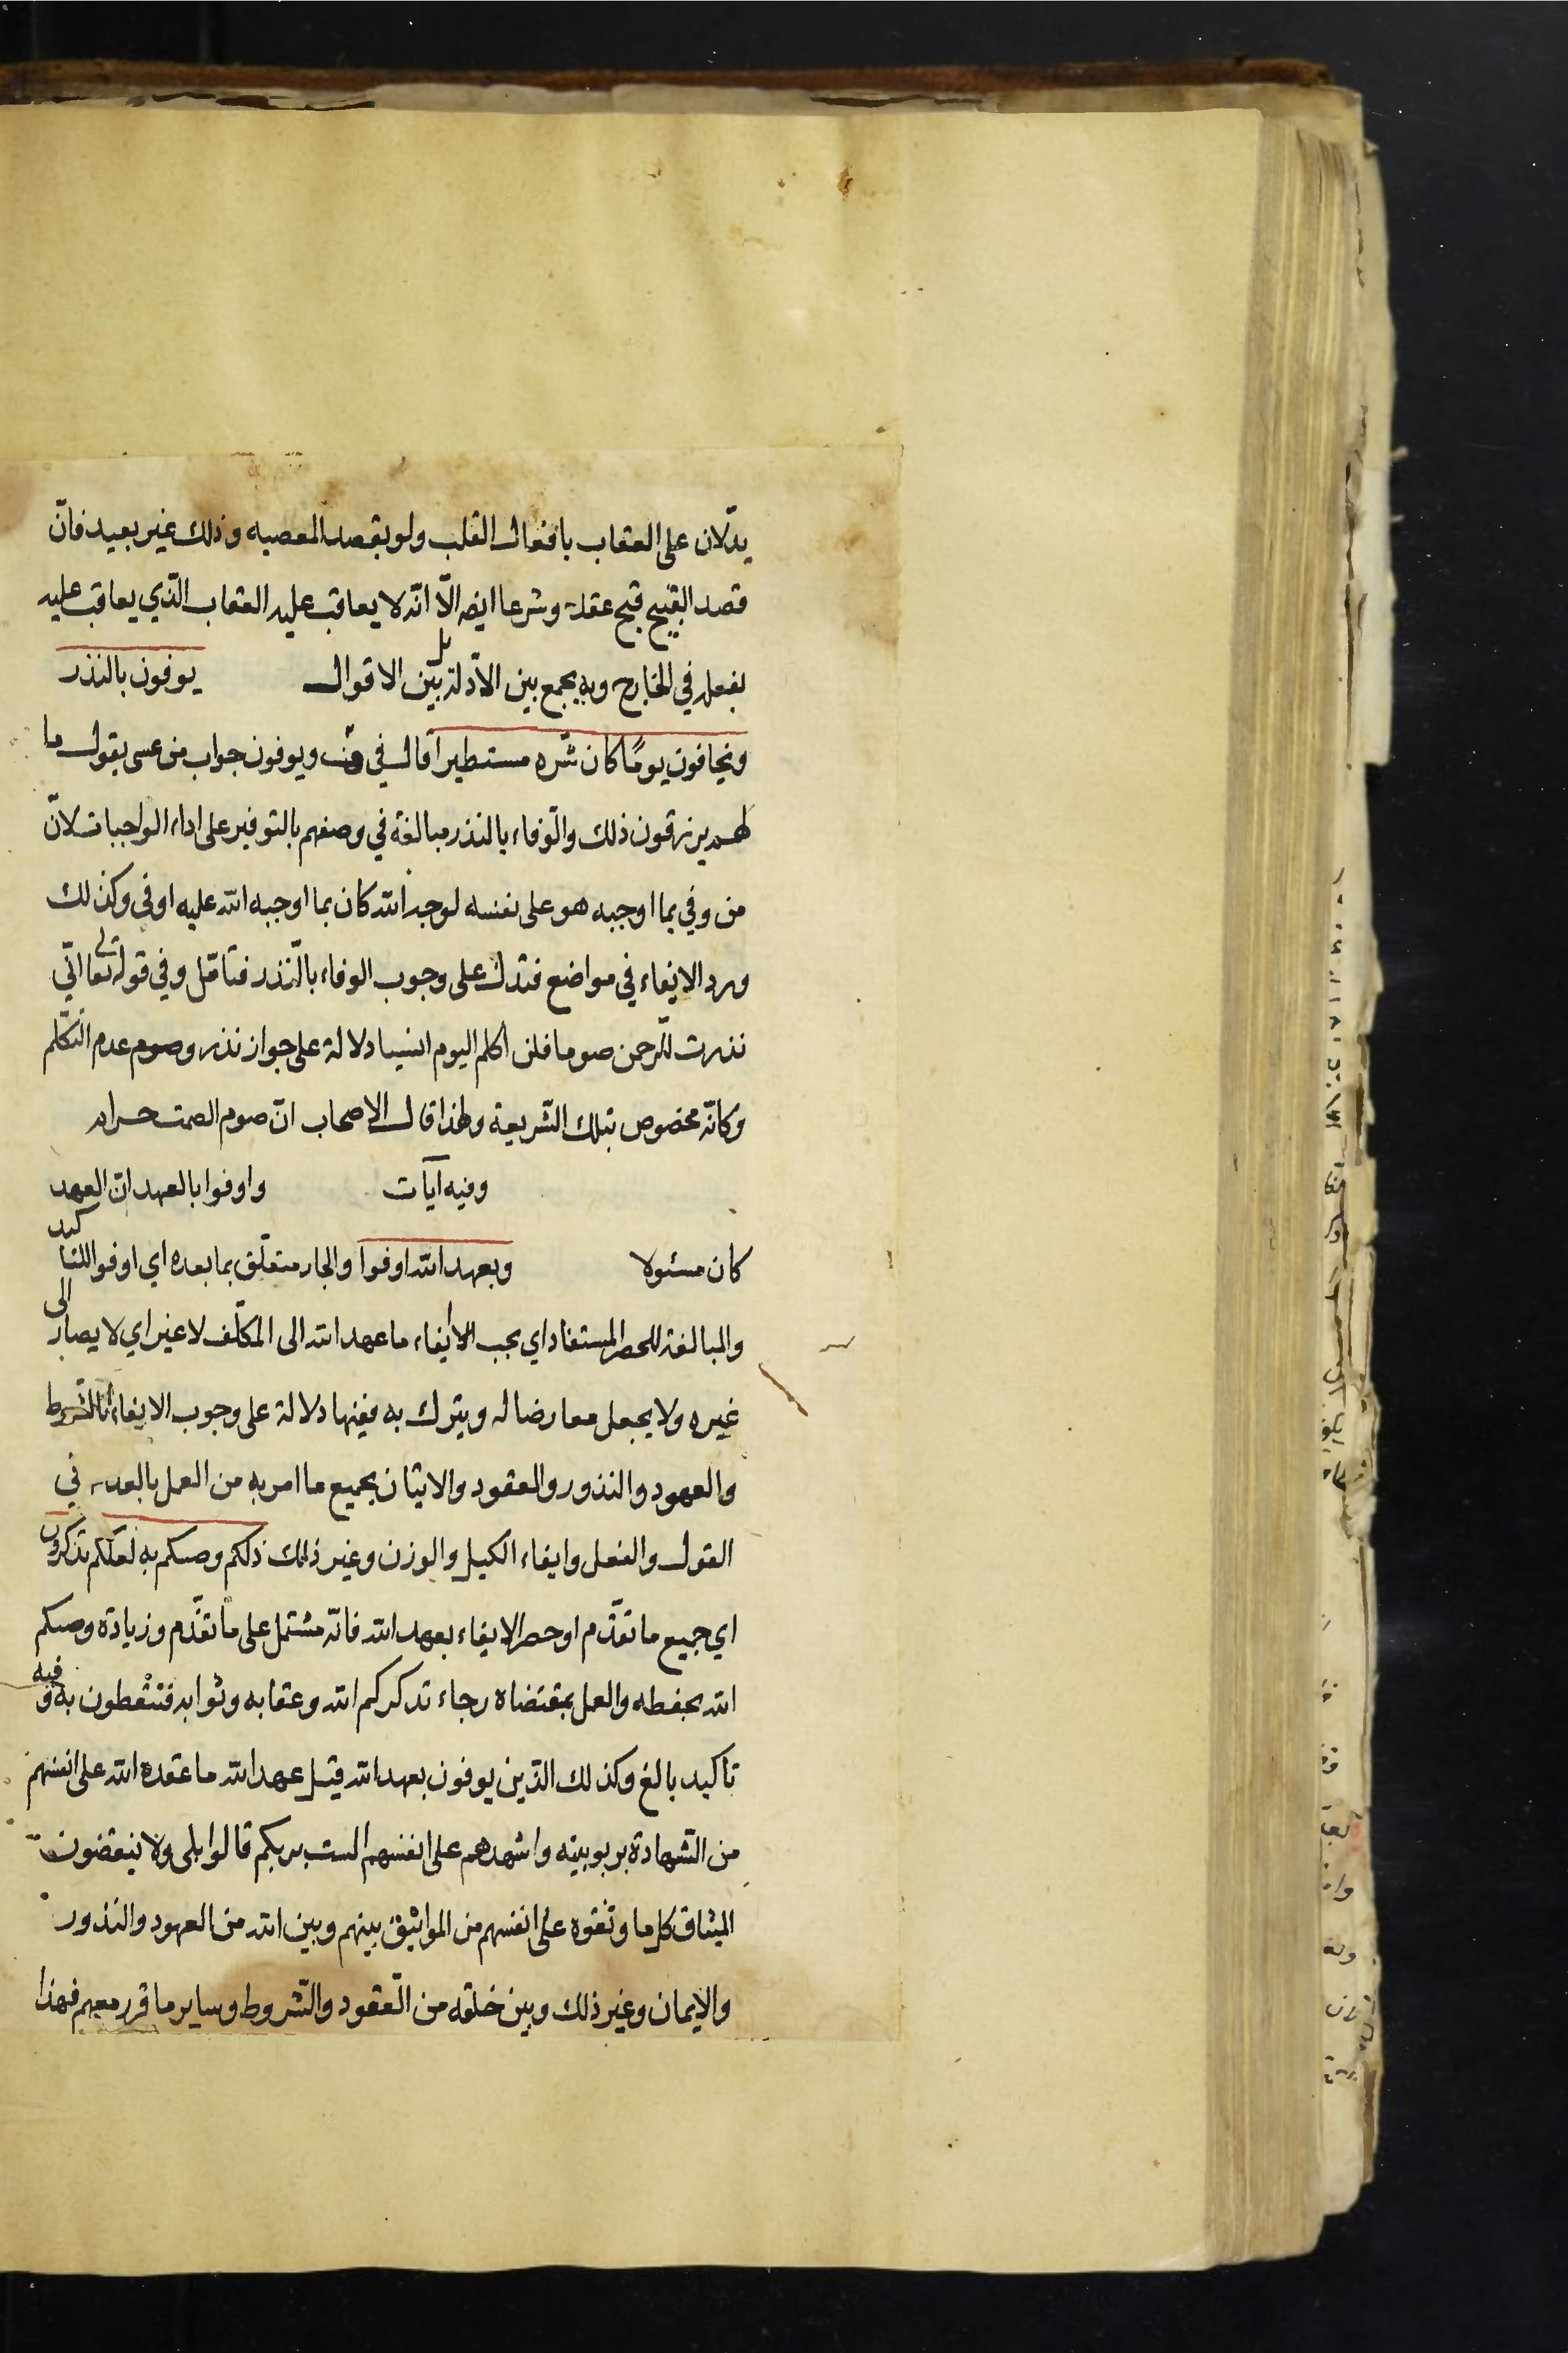 يدلّان على العقاب بافعال القلب ولو بقصد المعصيه وذلك غير بعيد فانّ
قصد القبيح قبيح عقلا وشرعا ايضا الّا انّه لا يعاقب عليه العقاب الّذي يعاقب عليه
بفعله في الخارج وبه يجمع بين الادّلة بل بين الاقوال يوفون بالنذر
ويخافون يومًا كان شرّه مستطيرا قال في ويوفون جواب من عسى يقول ما
لهم يرزقون ذلك والوفاء بالنذر مبالغة في وصفهم بالتوفير على اداء الواجبات لانّ
من وفى بما اوجبه هو على نفسه لوجه الله كان بما اوجبه الله عليه اوفى وكذلك
ورد الايفاء في مواضع فتدلّ على وجوب الوفاء بالنّذر فتامّل وفي قوله تعالى انّي
نذرت للرّحمن صوما فلن اكلم اليوم انسيا دلالة على جواز نذر وصوم عدم التكلّم
وكانّه مخصوص بتلك الشّريعة ولهذا قال الاصحاب انّ صوم الصمت حرام
وفيه آيات واوفوا بالعهد انّ العهد
كان مسئولا وبعهد الله اوفوا والجار متعلّق بما بعده اي اوفوا للتاكيد
والمبالغة للحصر المستفاد اي يجب الايفاء ما عهد الله الى المكلّف لا غير اي لا يصار الى
غيره ولا يجعل معارضا له ويترك به ففيها دلالة على وجوب الايفاء بالشّروط
والعهود والنذور والعقود والاتيان بجميع ما امر به من العمل بالعدل في
القول والفعل وايفاء الكيل والوزن وغير ذلك ذلكم وصيكم به لعلّكم تذكّرون
اي جميع ما تقدّم او حصر الايفاء بعهد الله فانّه مشتمل على ما تقدّم وزيادة وصيكم
الله بحفظه والعمل بمقتضاه رجاء تذكركم الله وعقابه وثوابه فتتّعظون به وفيه
تاكيد بالغ وكذلك الّذين يوفون بعهد الله قيل عهد الله ما عقده الله على انفسهم
من الشّهادة بربوبيته واشهدهم على انفسهم الست بربكم قالوا بلى ولا ينقضون
الميثاق كل ما وثقوه على انفسهم من المواثيق بينهم وبين الله من العهود والنذور
والايمان وغير ذلك وبين خلقه من العقود والشّروط وساير ما قرر معهم فهذا